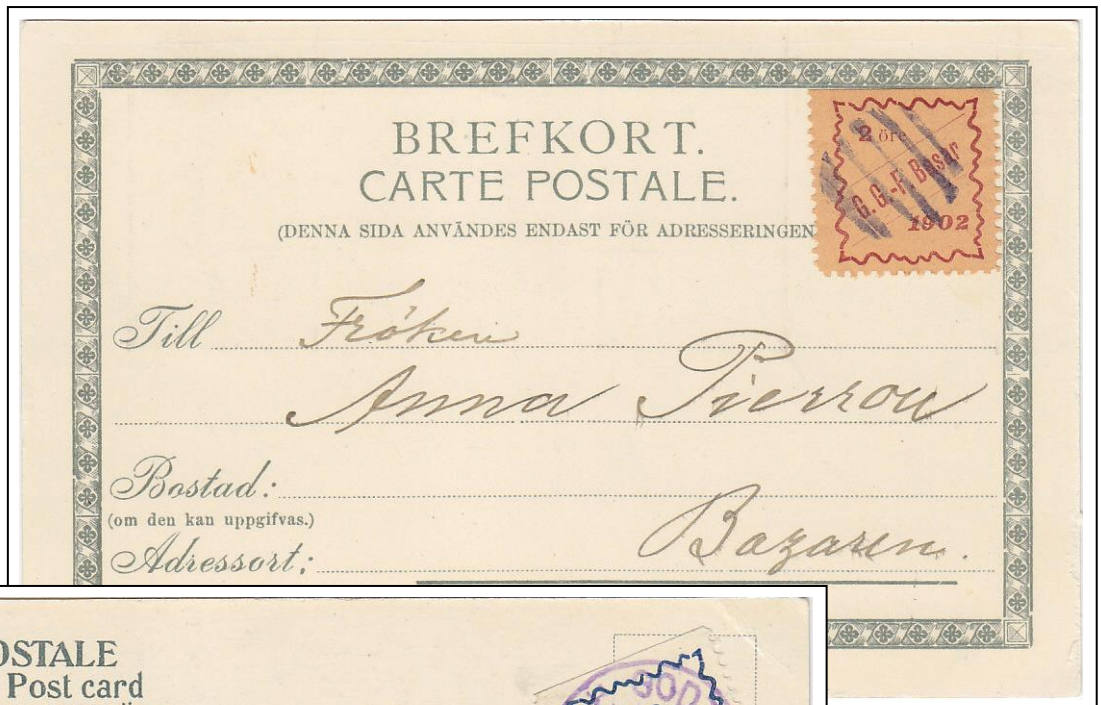 BREFKORT.
CARTE POSTALE.
(DENNA SIDA ANVÄNDES ENDAST FÖR ADRESSERINGEN
2 öre
G. G.-F. Basar
1902
Till Fröken
Anna Pierrou
Bostad:
(om den kan uppgifvas.)
Adressort: Bazaren.
OSTALE
Post card
GOD